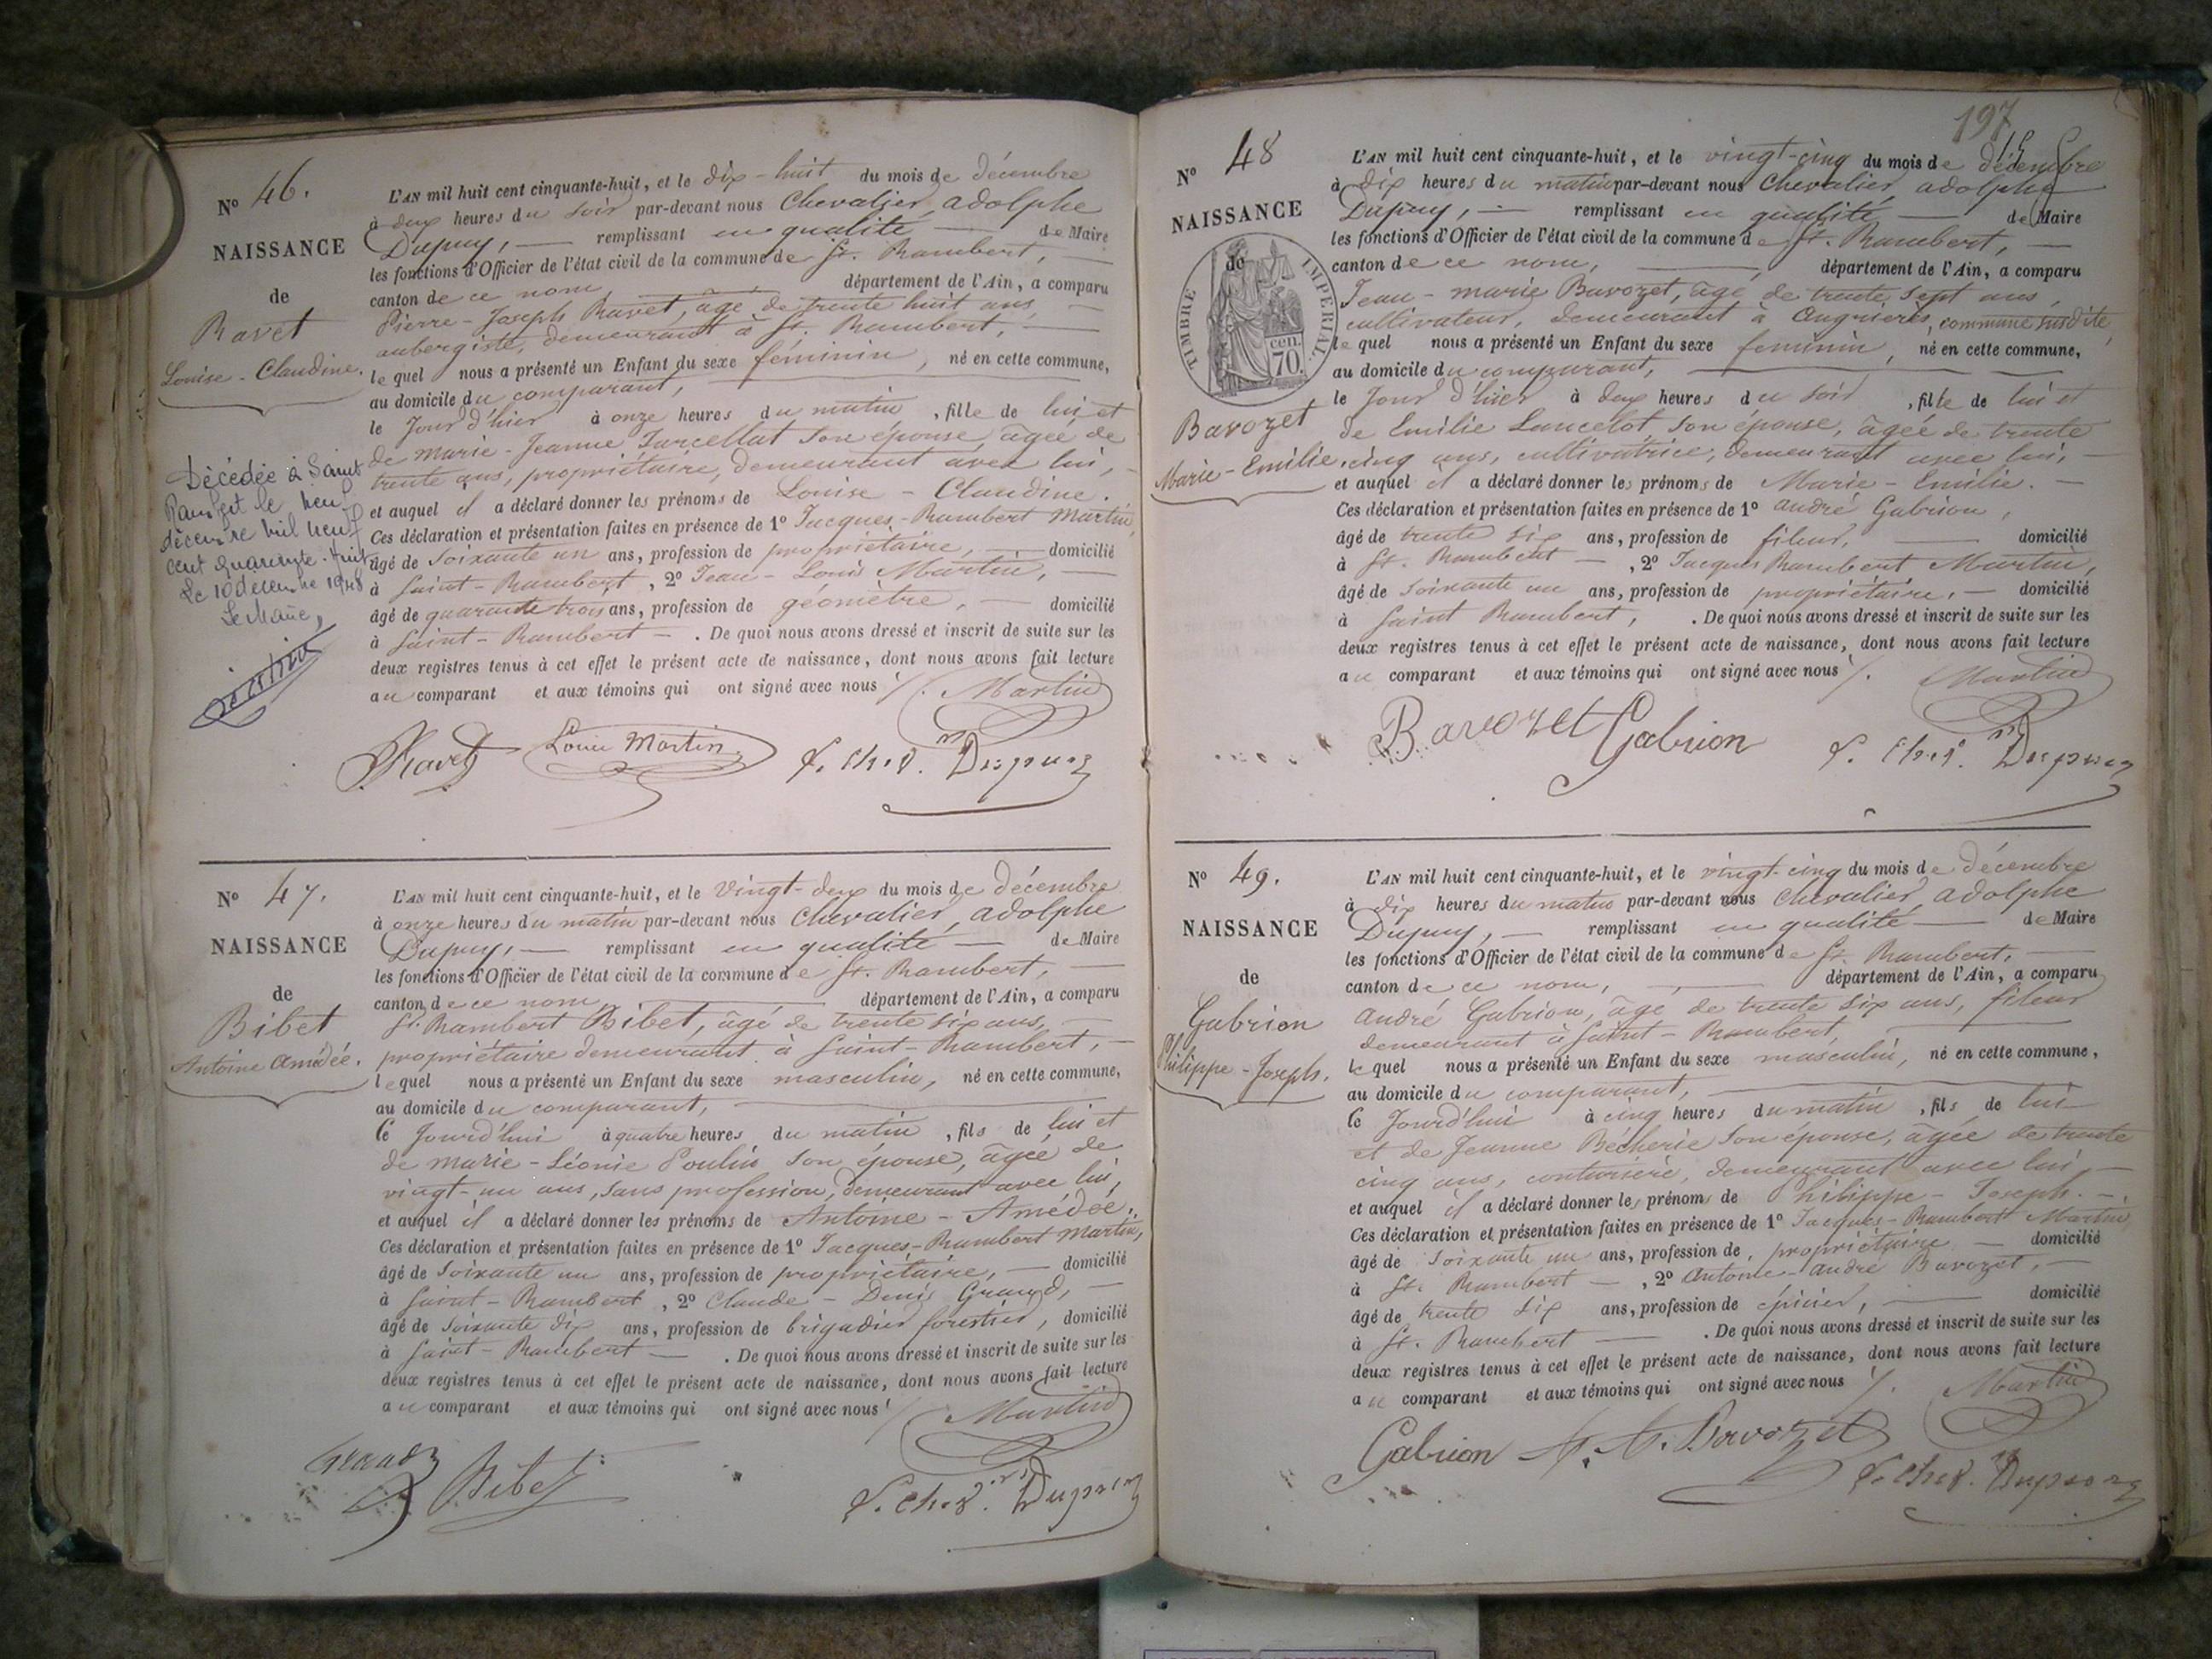 Nº 46.
NAISSANCE
de
Ravet
Louise-Claudine.
Décédée à Saint
Rambert le neuf
décembre mil neuf
cent quarante-huit
Le 10 décembre 1948
Le Maire,
L'AN mil huit cent cinquante-huit, et le dix-huit du mois de décembre
à deux heures du soir par-devant nous Chevalier, adolphe
Dupuy, — remplissant en qualité — de Maire
les fonctions d'Officier de l'état civil de la commune de St. Rambert, —
canton de ce nom, — département de l'Ain, a comparu
Pierre-Joseph Ravet, âgé de trente huit ans, —
aubergiste, demeurant à St. Rambert, —
lequel nous a présenté un Enfant du sexe féminin, né en cette commune,
au domicile du comparant, —
le Jour d'hier à onze heures du matin, fille de lui et
de marie-Jeanne Jarcellat son épouse, âgée de
trente ans, propriétaire, demeurant avec lui, —
et auquel il a déclaré donner les prénoms de Louise-Claudine.
Ces déclaration et présentation faites en présence de 1º Jacques-Rambert Martin,
âgé de soixante un ans, profession de propriétaire, — domicilié
à Saint-Rambert, 2º Jean-Louis Martin, —
âgé de quarante trois ans, profession de géomètre, — domicilié
à Saint-Rambert — . De quoi nous avons dressé et inscrit de suite sur les
deux registres tenus à cet effet le présent acte de naissance, dont nous avons fait lecture
au comparant et aux témoins qui ont signé avec nous ./. Martin
Ravet Louis Martin F. Chev. Dupuy
Nº 47.
NAISSANCE
de
Bibet
Antoine Amédée.
L'AN mil huit cent cinquante-huit, et le vingt-deux du mois de décembre
à onze heures du matin par-devant nous Chevalier, adolphe
Dupuy, — remplissant en qualité — de Maire
les fonctions d'Officier de l'état civil de la commune de St. Rambert, —
canton de ce nom, — département de l'Ain, a comparu
St. Rambert Bibet, âgé de trente six ans, —
propriétaire demeurant à Saint-Rambert, —
lequel nous a présenté un Enfant du sexe masculin, né en cette commune,
au domicile du comparant, —
Ce Jourd'hui à quatre heures du matin, fils de lui et
de marie-Léonie Poulin son épouse, âgée de
vingt-un ans, sans profession, demeurant avec lui,
et auquel il a déclaré donner les prénoms de Antoine-Amédée.
Ces déclaration et présentation faites en présence de 1º Jacques-Rambert Martin,
âgé de soixante un ans, profession de propriétaire, — domicilié
à Saint-Rambert, 2º Claude-Denis Grand, —
âgé de soixante dix ans, profession de brigadier forestier, domicilié
à Saint-Rambert — . De quoi nous avons dressé et inscrit de suite sur les
deux registres tenus à cet effet le présent acte de naissance, dont nous avons fait lecture
au comparant et aux témoins qui ont signé avec nous ./. Martin
Grand Bibet F. Chev. Dupuy
197
Nº 48
NAISSANCE
de
TIMBRE IMPERIAL.
cen.
70.
Bavozet
Marie-Emilie.
L'AN mil huit cent cinquante-huit, et le vingt-cinq du mois de décembre
à dix heures du matin par-devant nous Chevalier, adolphe
Dupuy, — remplissant en qualité — de Maire
les fonctions d'Officier de l'état civil de la commune de St. Rambert, —
canton de ce nom, — département de l'Ain, a comparu
Jean-marie Bavozet, âgé de trente sept ans,
cultivateur, demeurant à angrières, commune susdite,
lequel nous a présenté un Enfant du sexe feminin, né en cette commune,
au domicile du comparant, —
le Jour d'hier à deux heures du soir, fille de lui et
de Emilie Lancelot son épouse, âgée de trente
cinq ans, cultivatrice, demeurant avec lui, —
et auquel il a déclaré donner les prénoms de Marie-Emilie. —
Ces déclaration et présentation faites en présence de 1º andré Gabrion,
âgé de trente six ans, profession de fileur, — domicilié
à St. Rambert —, 2º Jacques Rambert Martin,
âgé de soixante un ans, profession de propriétaire, — domicilié
à Saint Rambert, . De quoi nous avons dressé et inscrit de suite sur les
deux registres tenus à cet effet le présent acte de naissance, dont nous avons fait lecture
au comparant et aux témoins qui ont signé avec nous ./. Martin
Bavozet Gabrion F. Chev. Dupuy
Nº 49.
NAISSANCE
de
Gabrion
Philippe-Joseph.
L'AN mil huit cent cinquante-huit, et le vingt-cinq du mois de décembre
à dix heures du matin par-devant nous Chevalier, adolphe
Dupuy, — remplissant en qualité — de Maire
les fonctions d'Officier de l'état civil de la commune de St. Rambert, —
canton de ce nom, — département de l'Ain, a comparu
André Gabrion, âgé de trente six ans, fileur
demeurant à Saint-Rambert, —
lequel nous a présenté un Enfant du sexe masculin, né en cette commune,
au domicile du comparant, —
Ce Jourd'hui à cinq heures du matin, fils de lui
et de Jeanne Bécherie son épouse, âgée de trente
cinq ans, couturière, demeurant avec lui, —
et auquel il a déclaré donner les prénoms de Philippe-Joseph. —
Ces déclaration et présentation faites en présence de 1º Jacques-Rambert Martin,
âgé de soixante un ans, profession de propriétaire — domicilié
à St. Rambert —, 2º Antoine-andré Bavozet, —
âgé de trente six ans, profession de épicier, — domicilié
à St. Rambert — . De quoi nous avons dressé et inscrit de suite sur les
deux registres tenus à cet effet le présent acte de naissance, dont nous avons fait lecture
au comparant et aux témoins qui ont signé avec nous ./. Martin
Gabrion A. A. Bavozet F. Chev. Dupuy